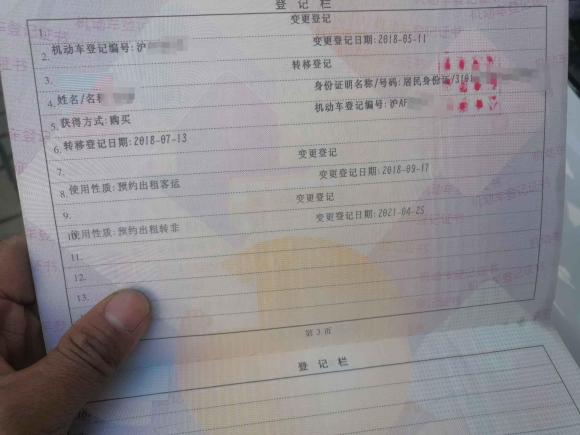 登记栏
1. 变更登记
2. 机动车登记编号:沪 变更登记日期:2018-05-11
3. 转移登记
4. 姓名/名称 身份证明名称/号码:居民身份证/3101
5. 获得方式:购买 机动车登记编号:沪AF
6. 转移登记日期:2018-07-13
7. 变更登记
8. 使用性质:预约出租客运 变更登记日期:2018-09-17
9. 变更登记
10. 使用性质:预约出租转非 变更登记日期:2021-04-25
11.
12.
13.
第3页
登记栏